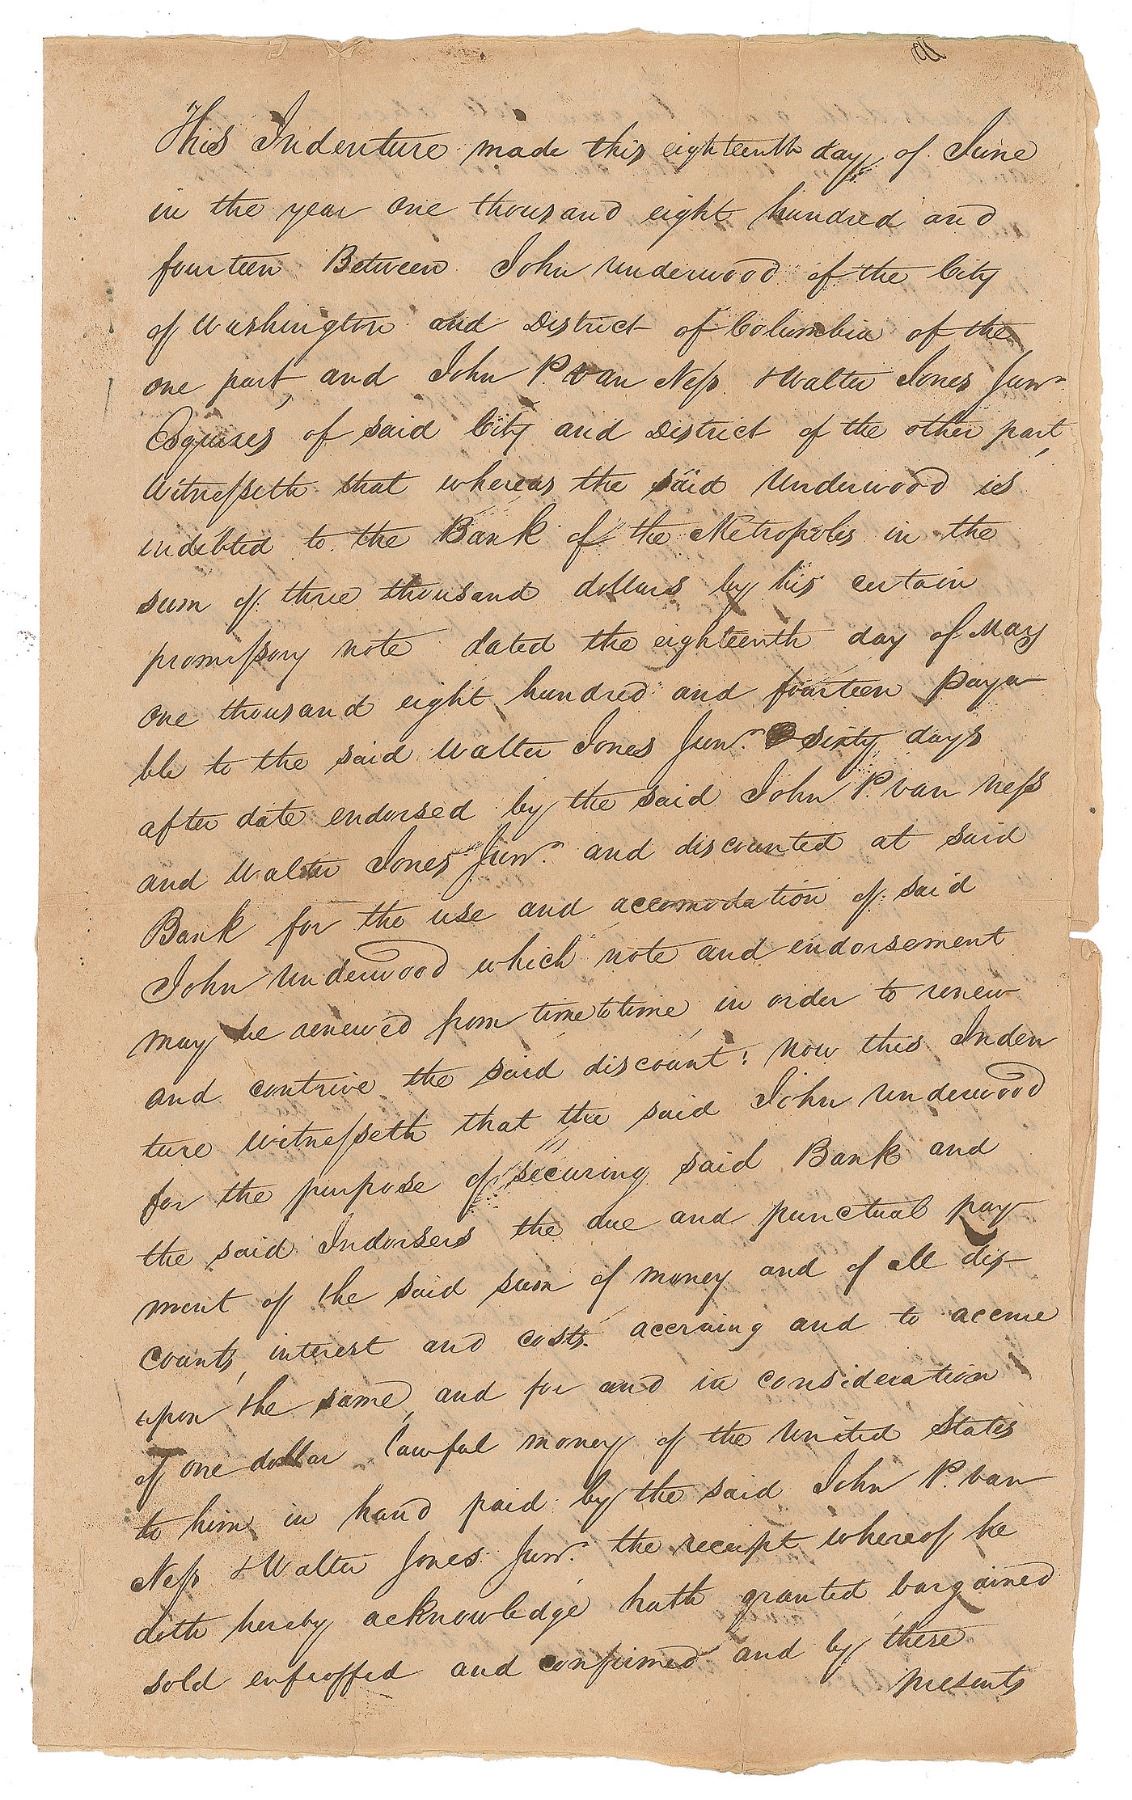 This Indenture made this eighteenth day of June
in the year one thousand eight hundred and
fourteen Between John Underwood of the City
of Washington and District of Columbia of the
one part, and John P. Van Ness & Walter Jones Junr
Esquires of said City and District of the other part,
Witnesseth that whereas the said Underwood is
indebted to the Bank of the Metropolis in the
sum of three thousand dollars by his certain
promissory note dated the eighteenth day of May
one thousand eight hundred and fourteen paya
ble to the said Walter Jones Junr. sixty days
after date endorsed by the said John P. Van Ness
and Walter Jones Junr. and discounted at said
Bank for the use and accomodation of said
John Underwood which note and endorsement
may be renewed from time to time, in order to renew
and contrive the said discount: Now this Inden
ture Witnesseth that the said John Underwood
for the purpose of securing said Bank and
the said Indorsers the due and punctual pay
ment of the said sum of money and of all dis-
counts, interest and costs accruing and to accrue
upon the same, and for and in consideration
of one dollar lawful money of the United States
to him in hand paid by the said John P. Van
Ness & Walter Jones Junr. the receipt whereof he
doth hereby acknowledge hath granted bargained
sold enfeoffed and confirmed and by these
presents